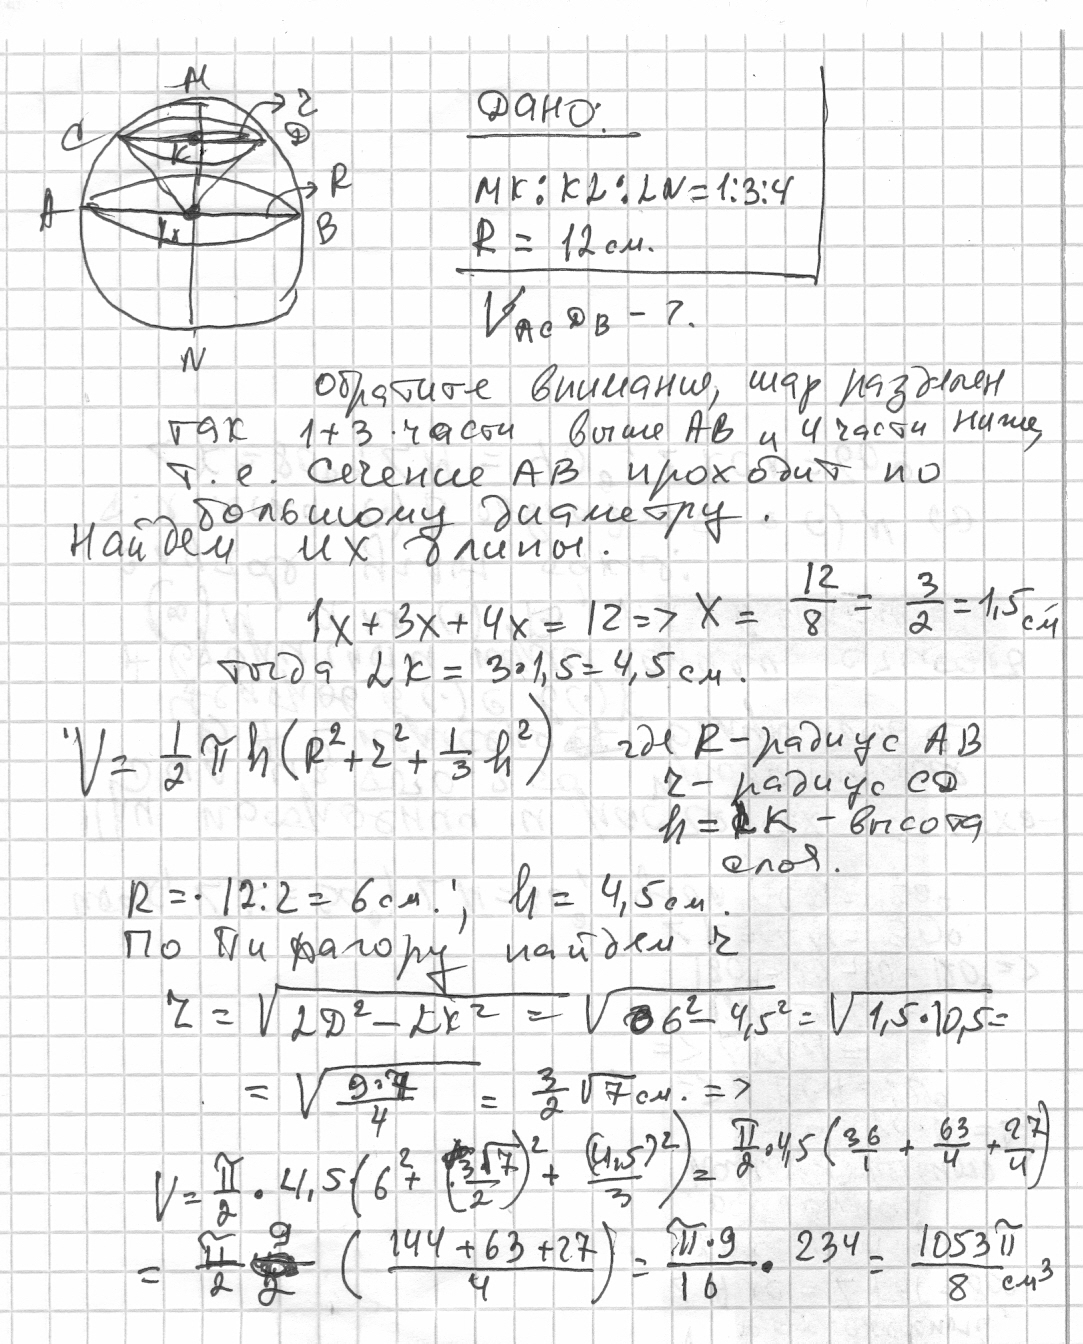 M
r
C
D
K
R
A
B
Lx
N
Дано:
MK:KL:LN=1:3:4
R = 12 см.
V ACDB - ?
обратите внимания, шар разделен
так 1+3 части выше AB и 4 части ниже,
т.е. сечение AB проходит по
большому диаметру.
Найдем их длины.
1x+3x+4x=12=> x = 12/8 = 3/2 = 1,5 см
тогда LK = 3·1,5=4,5 см.
V= 1/2 π h (R²+r²+1/3 h²) где R-радиус AB
r- радиус CD
h=LK-высота
слоя.
R = 12:2=6 см.; h= 4,5 см.
По Пифагору найдем r
r = √(LD²-LK²) = √(6²-4,5²) = √(1,5·10,5) =
= √(9·7/4) = 3/2 √7 см. =>
V= π/2 · 4,5 (6²+ (3√7/2)² + (4,5)²/3) = π/2 ·4,5 (36/1 + 63/4 + 27/4)
= π/2 9/2 ((144+63+27)/4) = π·9/16 · 234 = 1053π/8 см³